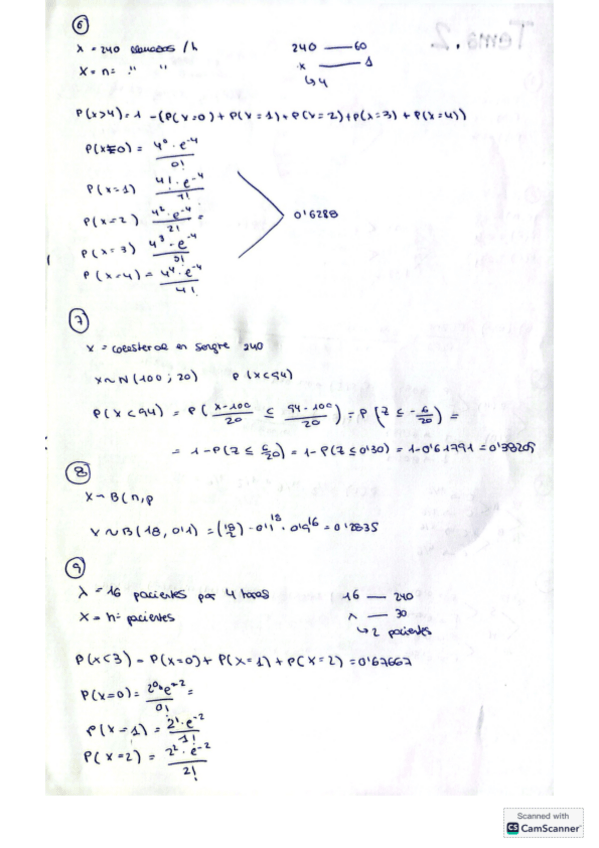 6
λ = 240 llamadas / h 240 — 60
X = nº " " x — 1
↳ 4
P(x>4) = 1 - (P(x=0) + P(x=1) + P(x=2) + P(x=3) + P(x=4))
P(x=0) = 4⁰ · e⁻⁴ / 0!
P(x=1) 4¹ · e⁻⁴ / 1!
P(x=2) 4² · e⁻⁴ / 2! = 0'6288
P(x=3) 4³ · e⁻⁴ / 3!
P(x=4) = 4⁴ · e⁻⁴ / 4!
7
x = colesterol en sangre 240
x ~ N(100; 20) P(x<94)
P(x<94) = P(x-100 / 20 ≤ 94-100 / 20) = P(Z ≤ -6/20) =
= 1-P(Z ≤ 6/20) = 1-P(Z ≤ 0'30) = 1-0'61791 = 0'38209
8
x ~ B(n,p
x ~ B(18, 0'1) = (18 2) · 0'1¹⁸ · 0'9¹⁶ = 0'2835
9
λ = 16 pacientes por 4 horas 16 — 240
X = nº pacientes λ — 30
↳ 2 pacientes
P(x<3) = P(x=0) + P(x=1) + P(x=2) = 0'67667
P(x=0) = 2⁰ · e⁻² / 0! =
P(x=1) = 2¹ · e⁻² / 1!
P(x=2) = 2² · e⁻² / 2!
Tema 2
Scanned with
CS CamScanner